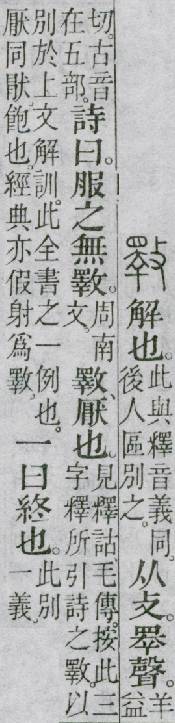 斁 解也。此與釋音義同。後人區別之。从攴。睪聲。羊益
切。古音在五部。詩曰。服之無斁。周南文。斁、厭也。見釋詁毛傳。按此三字釋所引詩之斁。以
別於上文解訓。此全書之一例也。厭同猒、飽也。經典亦假射爲斁。一曰終也。此別一義。